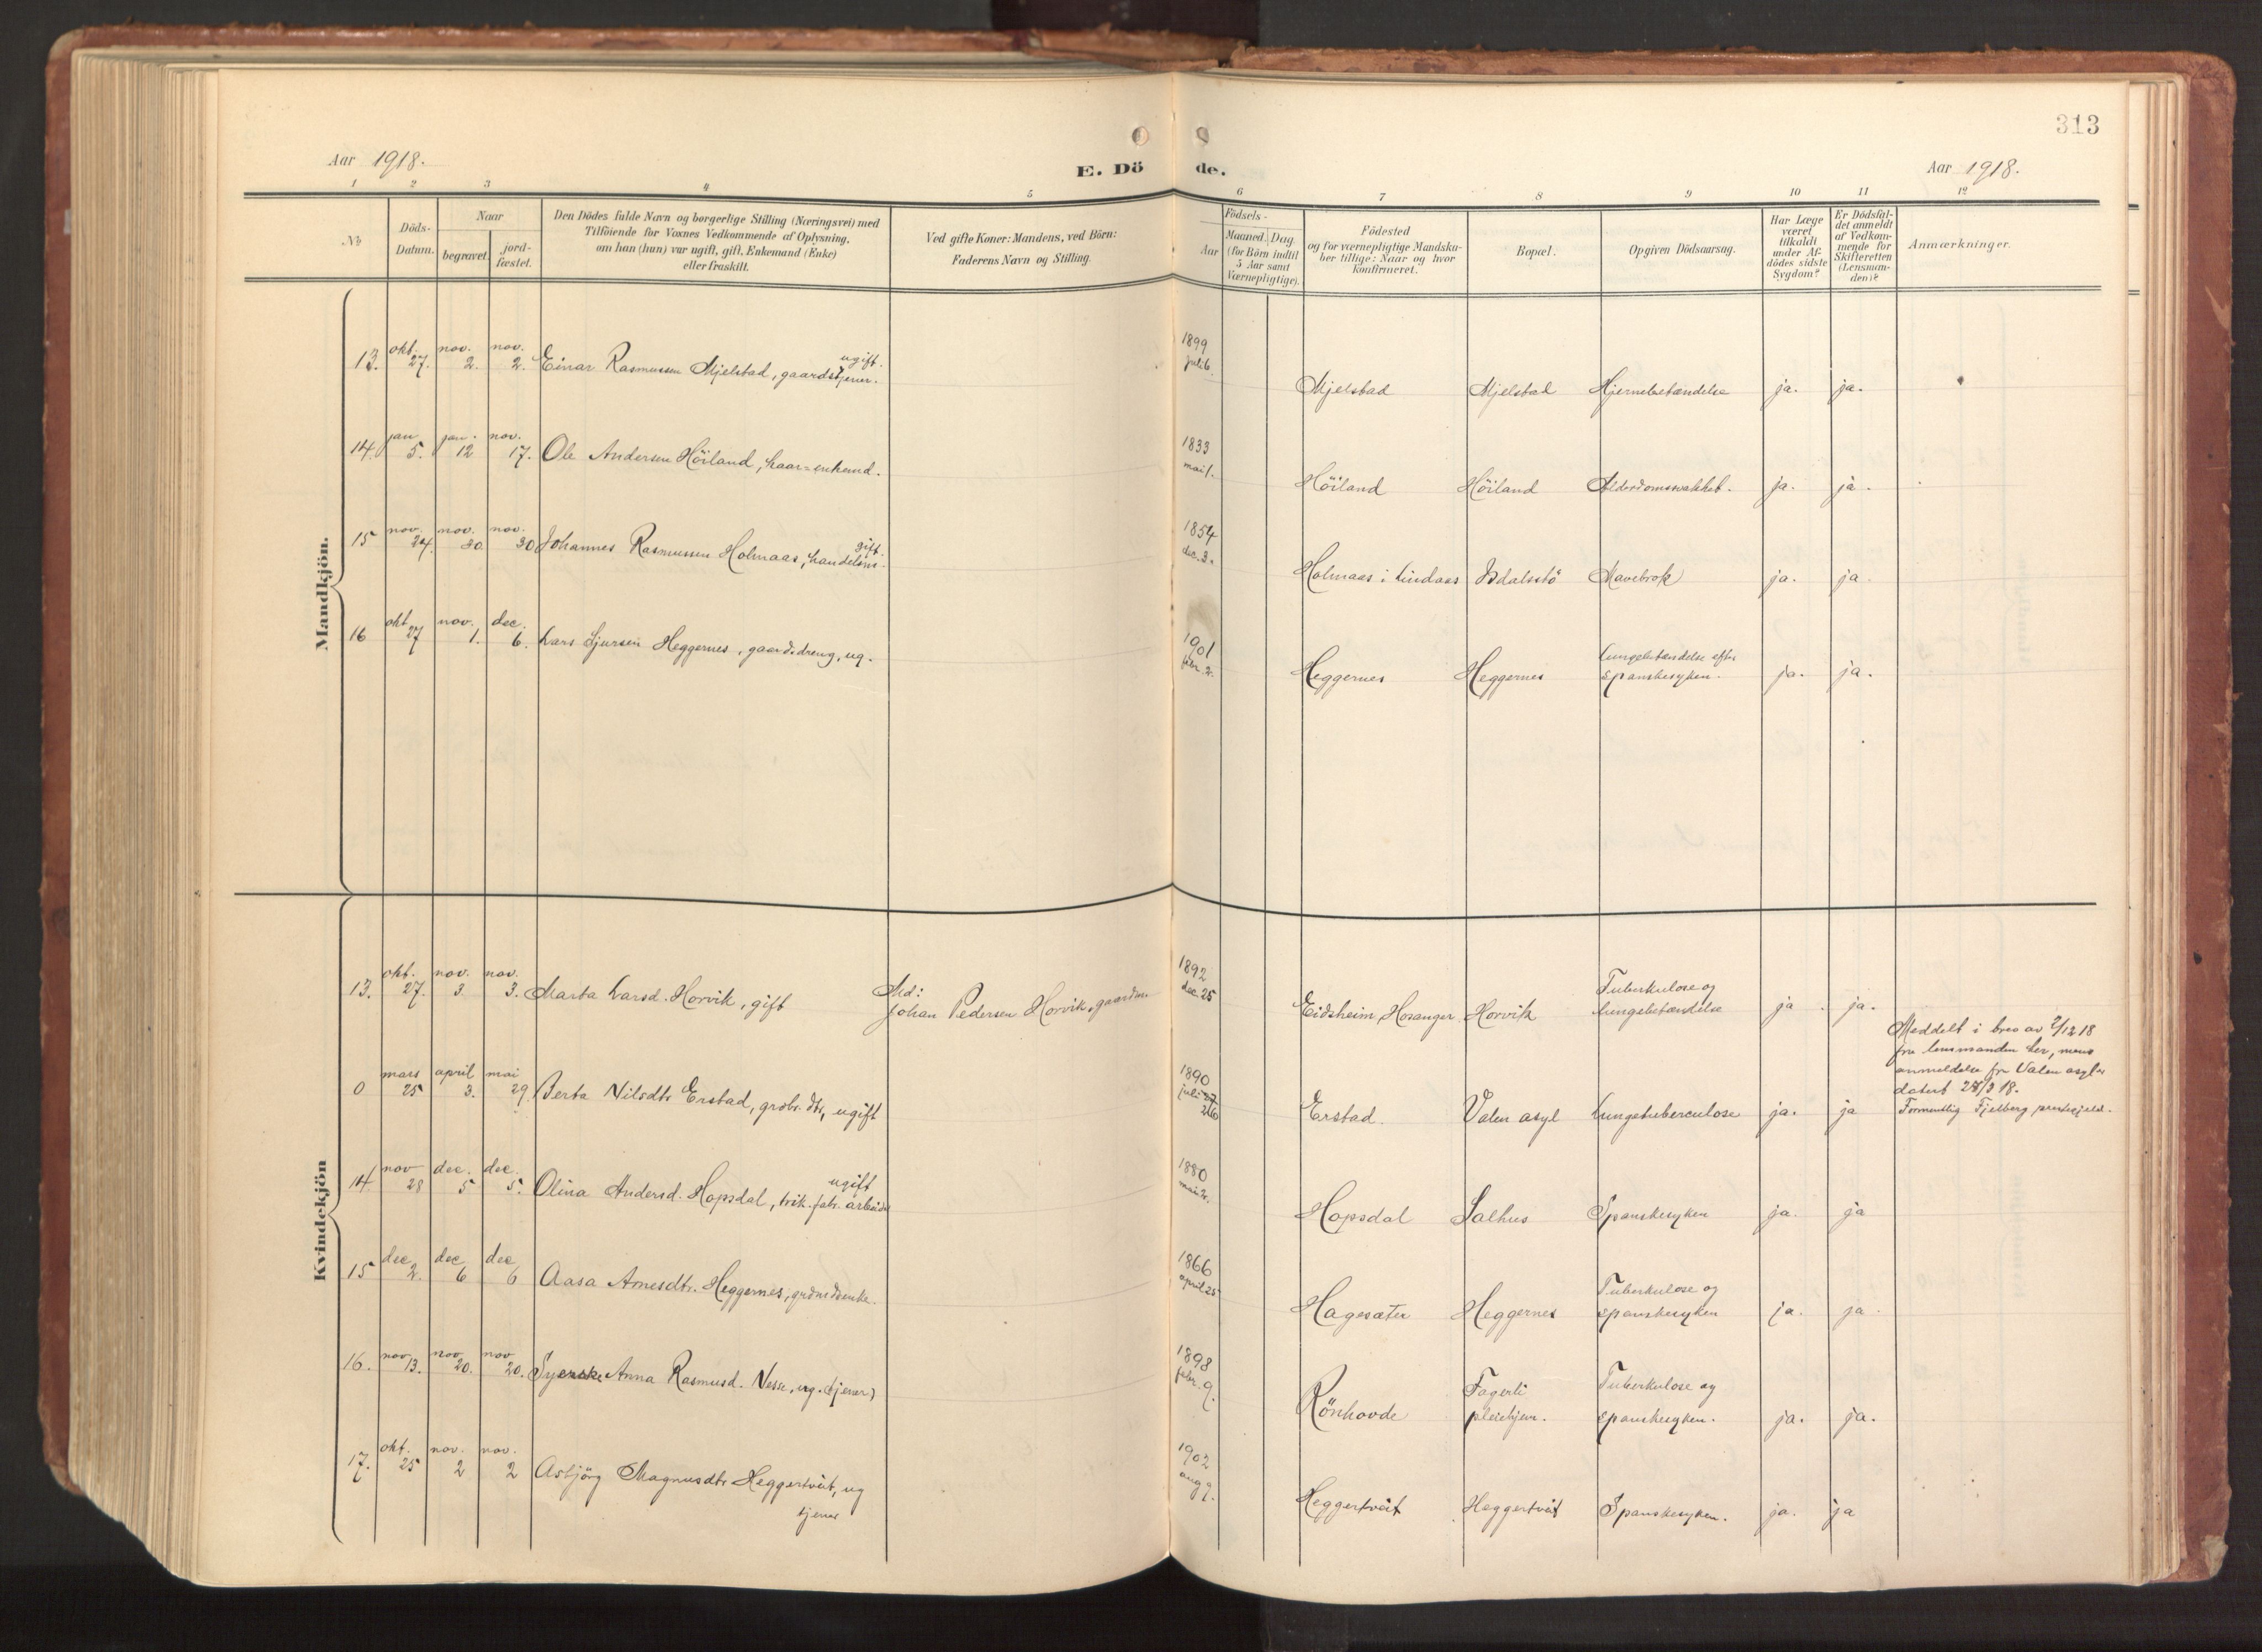 313
Aar 1918.
E. Dö
de.
Aar 1918.
1 2 3 4 5 6 7 8 9 10 11 12
No
Döds-
Datum.
Naar
begravet.
jord-
fæstet.
Den Dödes fulde Navn og borgerlige Stilling (Næringsvei) med
Tilföiende for Voxnes Vedkommende af Oplysning,
om han (hun) var ugift, gift, Enkemand (Enke)
eller fraskilt.
Ved gifte Koner: Mandens, ved Börn:
Faderens Navn og Stilling.
Födsels-
Aar
Maaned. Dag
(for Börn indtil
5 Aar samt
Værnepligtige).
Födested
og for værnepligtige Mandska-
ber tillige: Naar og hvor
konfirmeret.
Bopæl.
Opgiven Dödsaarsag.
Har Læge
været
tilkaldt
under Af-
dödes sidste
Sygdom?
Er Dödsfal-
det anmeldt
af Vedkom-
mende for
Skifteretten
(Lensman-
den)?
Anmærkninger.
Mandkjön.
okt. nov. nov. ugift. 1899
13. 27. 2. 2. Einar Rasmussen Mjelstad, gaardstjener. juli 6.
Mjelstad Mjelstad Hjernebetændelse ja. ja.
jan jan. nov. 1833
14. 5. 12 17. Ole Andersen Höiland, kaar-enkemd. mai 1.
Höiland Höiland Alderdomssvakhet. ja. ja.
nov. nov. nov. gift. 1854
15 24. 30. 30 Johannes Rasmussen Holmaas, handelsm. dec. 3.
Holmaas i Lindaas Isdalstö Mavebrok ja. ja.
okt nov. dec. 1901
16 27 1. 6. Lars Sjursen Heggernes, gaardsdreng, ug. febr. 2.
Lungebetændelse efter
Heggernes Heggernes spanskesyken. ja. ja.
Kvindekjön
okt. nov. nov. Md: 1892
13. 27. 3. 3. Marta Larsd. Horvik, gift Johan Pedersen Horvik, gaardm. dec. 25
Tuberkulose og
Eidsheim, Hosanger Horvik lungebetændelse ja. ja.
mars april mai 1890
0 25 3. 29. Berta Nilsdtr Erstad, grdbr. dtr, ugift juli 27 26
Erstad. Valen asyl Lungetuberculose ja. ja
Meddelt i brev av 9/12 18
fra lensmanden her, mens
anmeldelse fra Valen asyl er
datert 28/3 18.
Formentlig Fjelberg prestegjeld.
nov dec. dec. ugift 1880
14. 28 5 5. Olina Andersd. Hopsdal, trik.fabr. arbeider mai 2.
Hopsdal Salhus Spanskesyken ja. ja
dec dec dec 1866
15 2. 6 6 Aasa Arnesdtr. Heggernes, grdmdsenke. april 25
Tuberkulose og
Hagesæter Heggernes spanskesyken ja. ja.
nov nov nov 1898
16. 13. 20. 20. Syerske Anna Rasmusd. Nesse, ug. (tjener) febr. 9.
Fagerli Tuberkulose og
Rönhovde pleiehjem. spanskesyken. ja. ja.
okt. nov. nov. 1902
17. 25 2 2 Asbjörg Magnusdtr Heggertveit, ug aug 9.
tjener
Heggertveit Heggertveit Spanskesyken. ja. ja